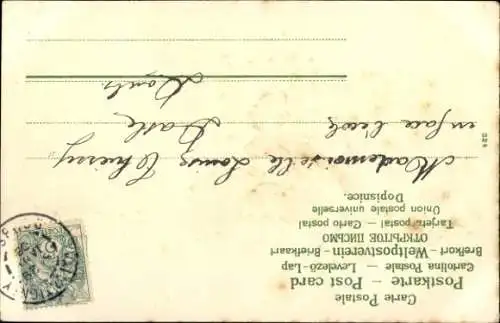 Carte Postale
Postkarte — Post card
Cartolina Postale — Levelező-Lap
Brefkort — Weltpostverein — Briefkaart
ОТКРЫТОЕ ПИСЬМО
Tarjeta postal — Carto postal
Union postale universelle
Dopisnice.
Mademoiselle Louise Thierry
en face l'école
Dasle
Doubs
321